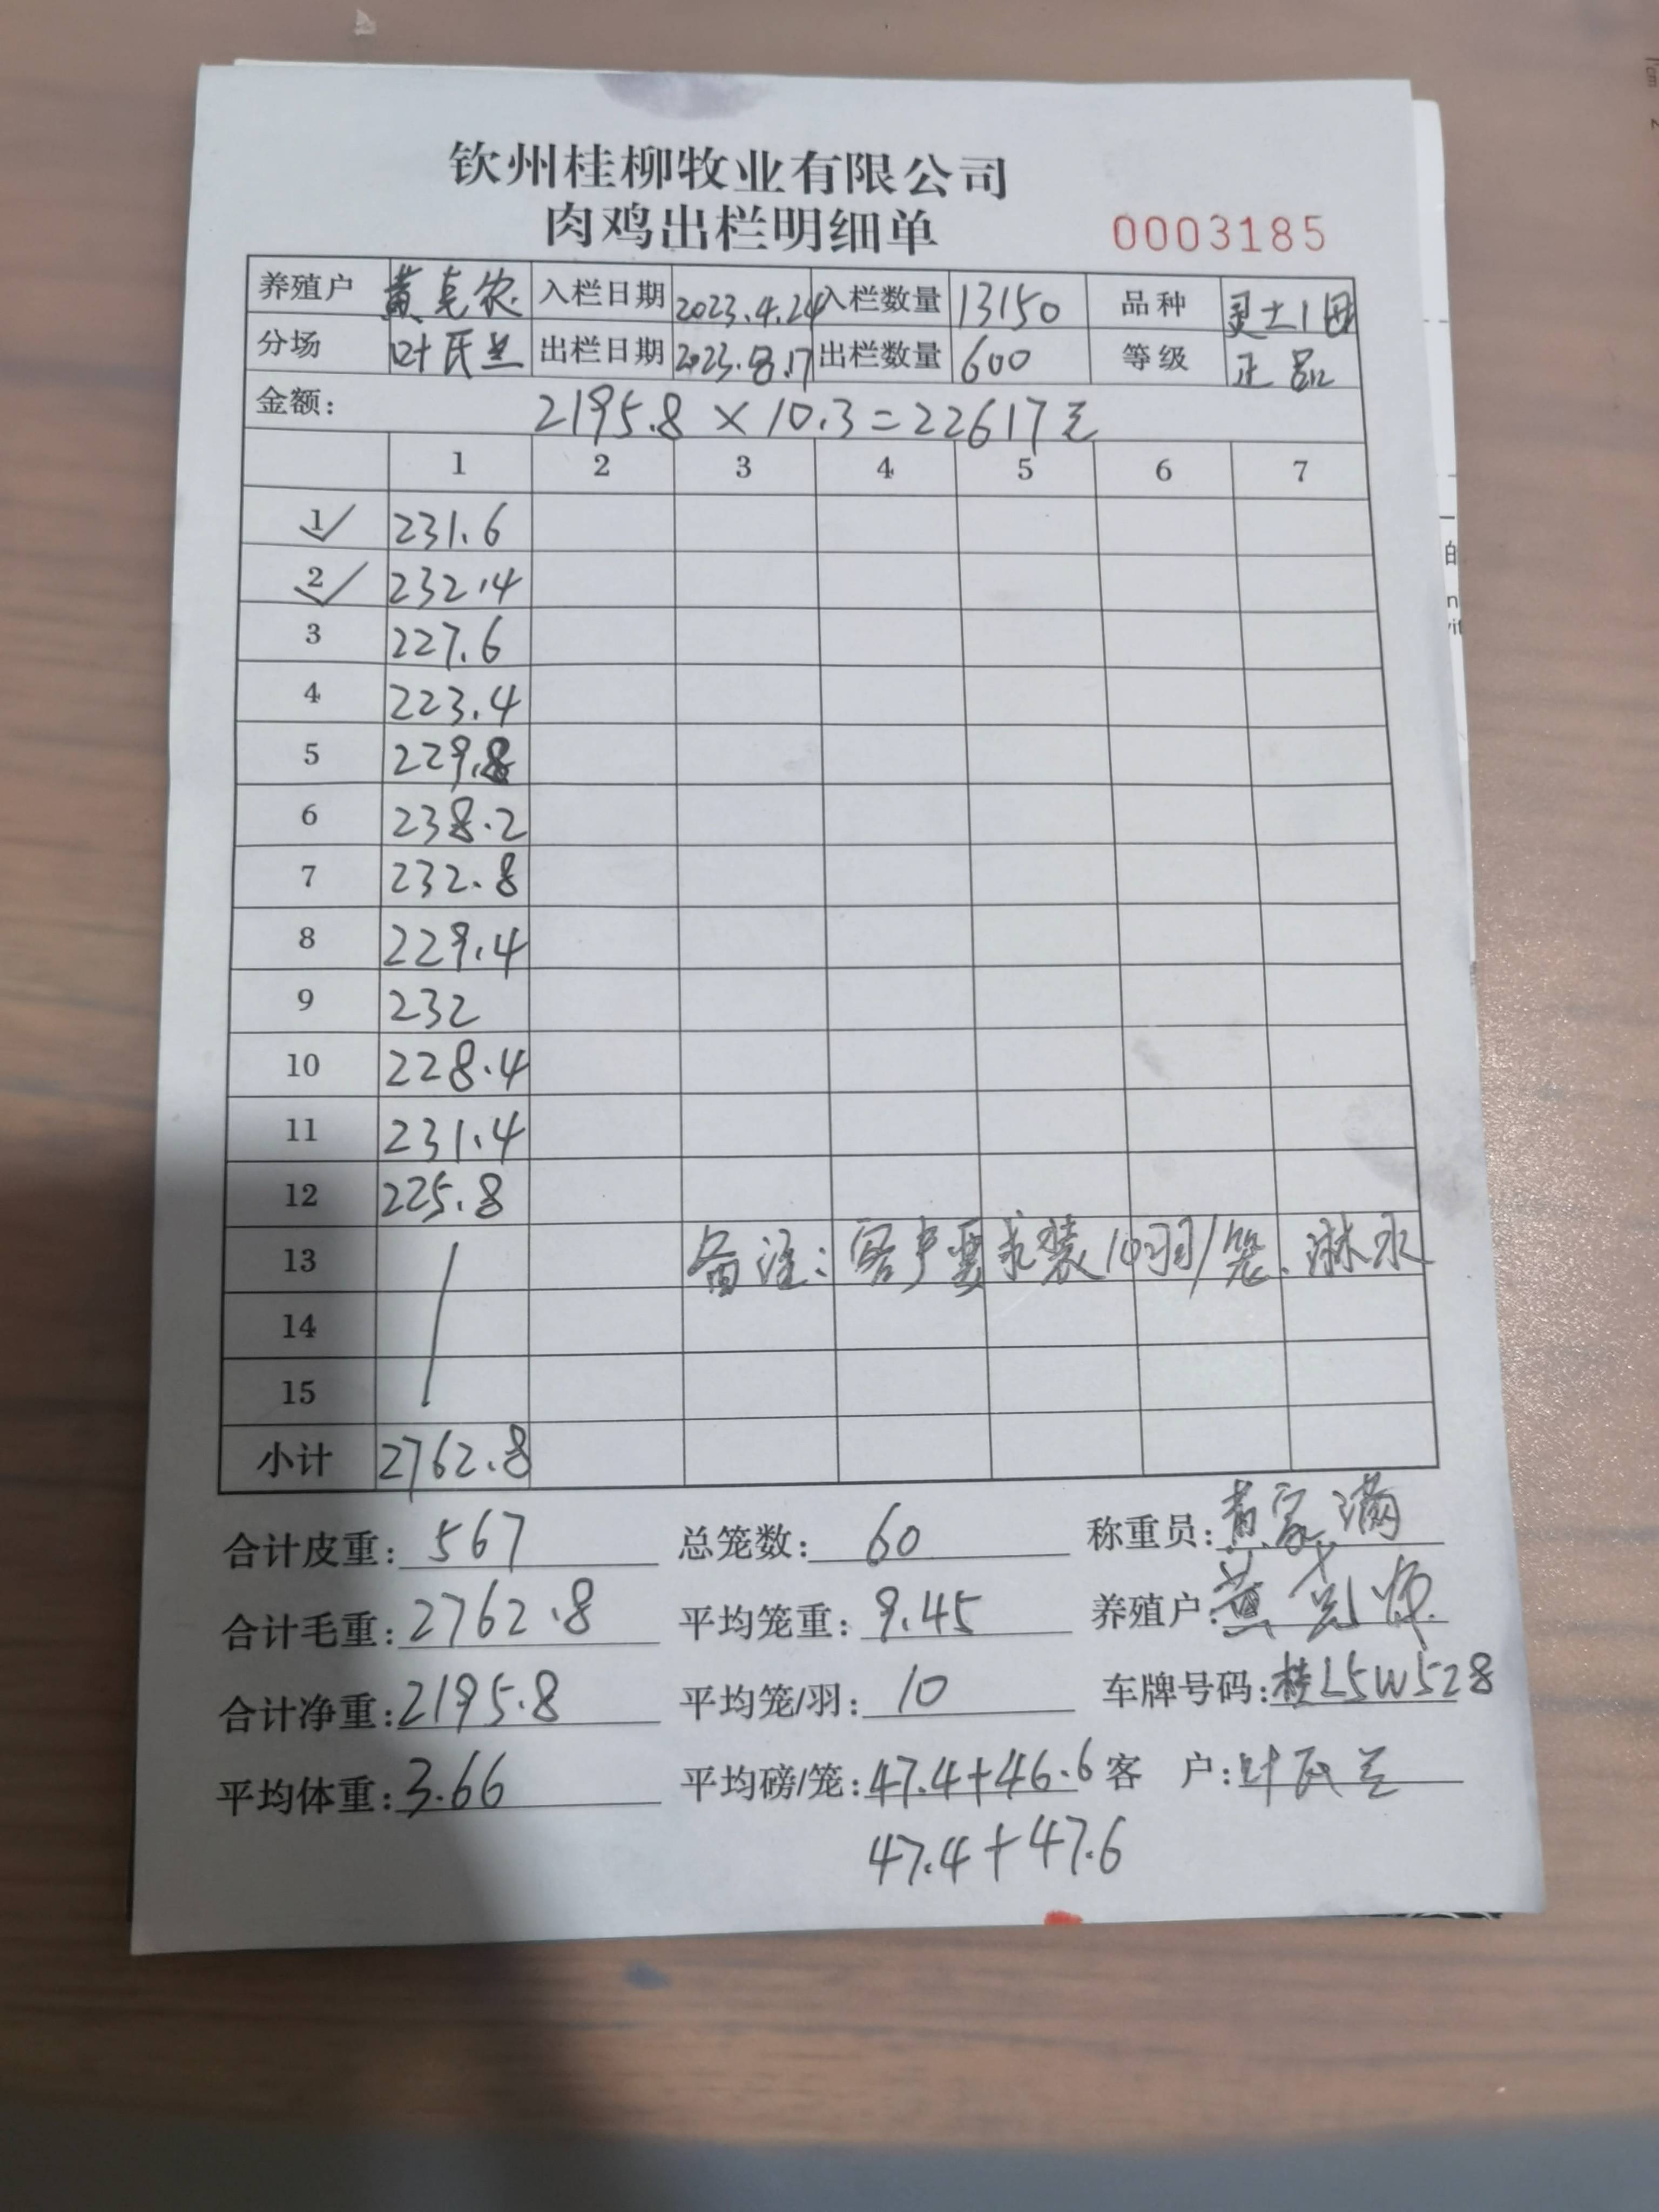 钦州桂柳牧业有限公司
肉鸡出栏明细单 0003185
养殖户 黄 入栏日期 2023.4.24 入栏数量 13150 品种 灵土1
分场 叶氏兰 出栏日期 2023.8.17 出栏数量 600 等级 正品
金额: 2195.8 × 10.3 = 22617元
1 2 3 4 5 6 7
1 231.6
2 232.4
3 227.6
4 223.4
5 229.8
6 238.2
7 232.8
8 229.4
9 232
10 228.4
11 231.4
12 225.8
13 备注:客户要求装10羽/笼.淋水
14
15
小计 2762.8
合计皮重: 567 总笼数: 60 称重员: 黄家满
合计毛重: 2762.8 平均笼重: 9.45 养殖户: 黄
合计净重: 2195.8 平均笼/羽: 10 车牌号码: 桂L5W528
平均体重: 3.66 平均磅/笼: 47.4+46.6 客 户: 叶氏兰
47.4+47.6